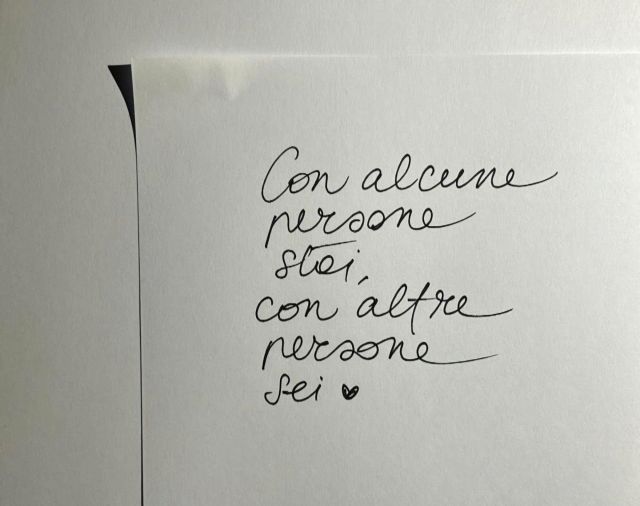 Con alcune
persone
stai,
con altre
persone
sei ♥